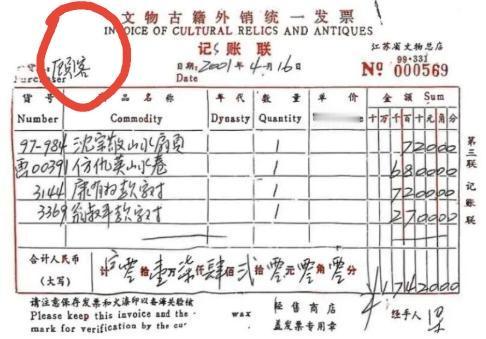 文物古籍外销统一发票
INVOICE OF CULTURAL RELICS AND ANTIQUES
记账联
江苏省文物总店
99·331
顾客
Purchaser
日期: 2001年4月16日
Date
№ 000569
货号 商品名称 年代 数量 单价 金额 Sum
Number Commodity Dynasty Quantity 十万千百十元角分
97-984 沈宗敬山水扇页 1 72000
00391 仿仇英山水卷 1 680000
3144 康有为款字对 1 720000
3369 翁叔平款字对 1 270000
合计人民币
(大写)
计 零拾壹万柒仟肆佰贰拾零元零角零分
¥1742000
第三联 记账联
请注意保存发票和火漆印以备海关检核
Please keep this invoice and the wax
mark for verification by the
经售商店
盖发票专用章
经手人